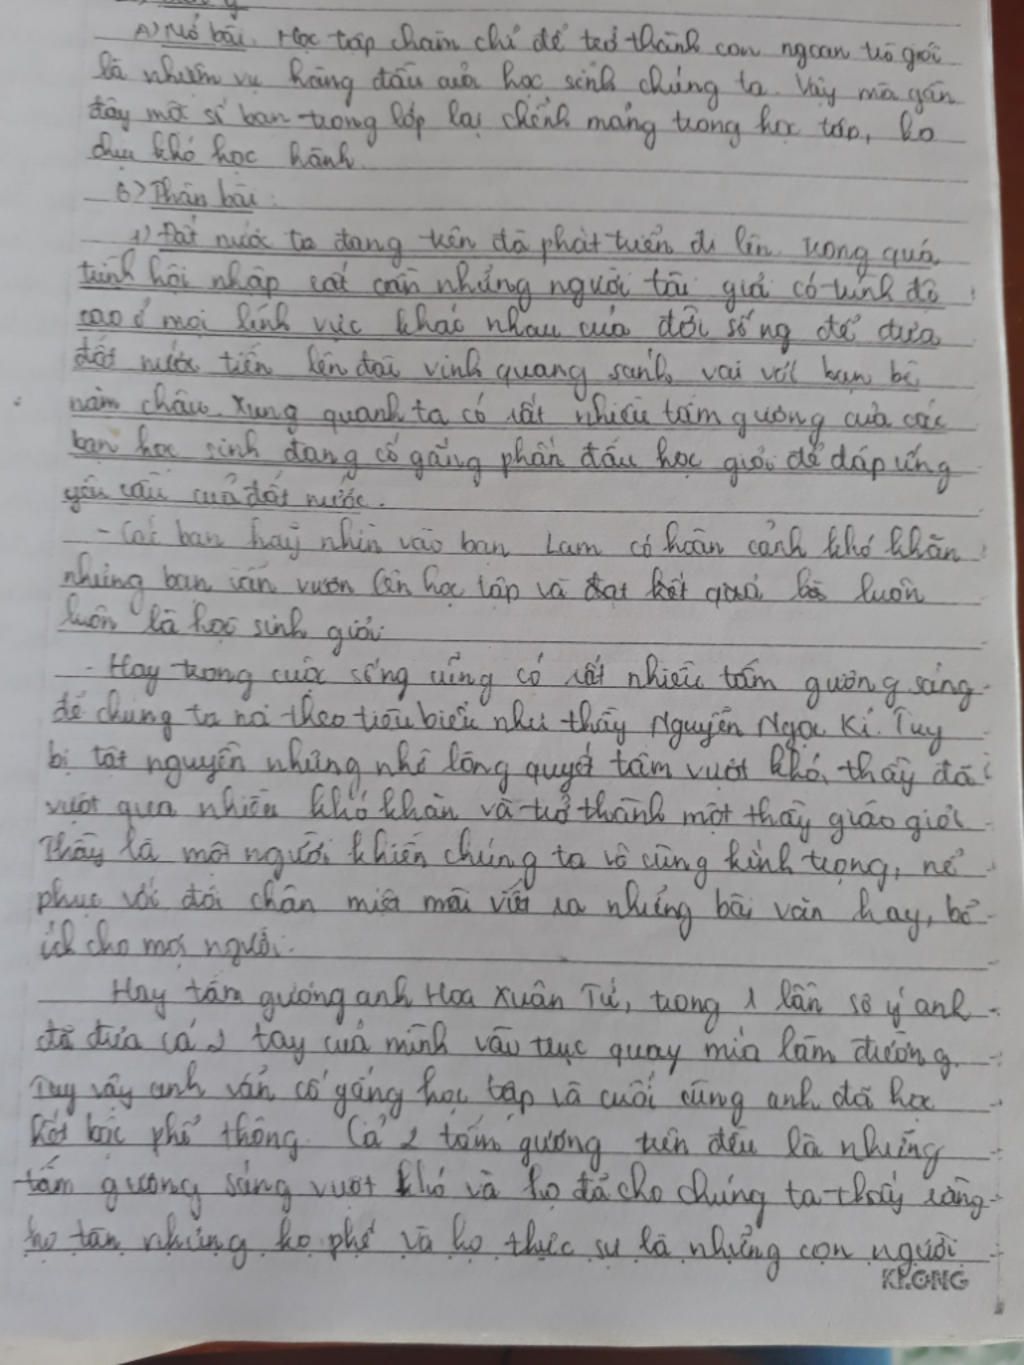 A) Mở bài. Học tập chăm chỉ để trở thành con ngoan trò giỏi
là nhiệm vụ hàng đầu của học sinh chúng ta. Vậy mà gần
đây một số bạn trong lớp lại chểnh mảng trong học tập, ko
chịu khó học hành.
B) Thân bài:
1) Đất nước ta đang trên đà phát triển đi lên trong quá
trình hội nhập rất cần những người tài giỏi có trình độ
cao ở mọi lĩnh vực khác nhau của đời sống để đưa
đất nước tiến lên đài vinh quang sánh vai với bạn bè
năm châu. Xung quanh ta có rất nhiều tấm gương của các
bạn học sinh đang cố gắng phấn đấu học giỏi để đáp ứng
yêu cầu của đất nước.
- Các bạn hãy nhìn vào bạn Lam có hoàn cảnh khó khăn
nhưng bạn vẫn vươn lên học tập và đạt kết quả luôn
luôn là học sinh giỏi
- Hay trong cuộc sống cũng có rất nhiều tấm gương sáng
để chúng ta noi theo tiêu biểu như thầy Nguyễn Ngọc Kí. Tuy
bị tật nguyền nhưng nhờ lòng quyết tâm vượt khó, thầy đã
vượt qua nhiều khó khăn và trở thành một thầy giáo giỏi
Thầy là một người khiến chúng ta vô cùng kính trọng, nể
phục với đôi chân miệt mài viết ra những bài văn hay, bổ
ích cho mọi người.
Hay tấm gương anh Hoa Xuân Tứ, trong 1 lần sơ ý anh
đã đưa cả 2 tay của mình vào trục quay mía làm đường.
Tuy vậy anh vẫn cố gắng học tập và cuối cùng anh đã học
hết bậc phổ thông. Cả 2 tấm gương trên đều là những
tấm gương sáng vượt khó và họ đã cho chúng ta thấy rằng
họ tàn nhưng ko phế và họ thực sự là những con người
KLONG